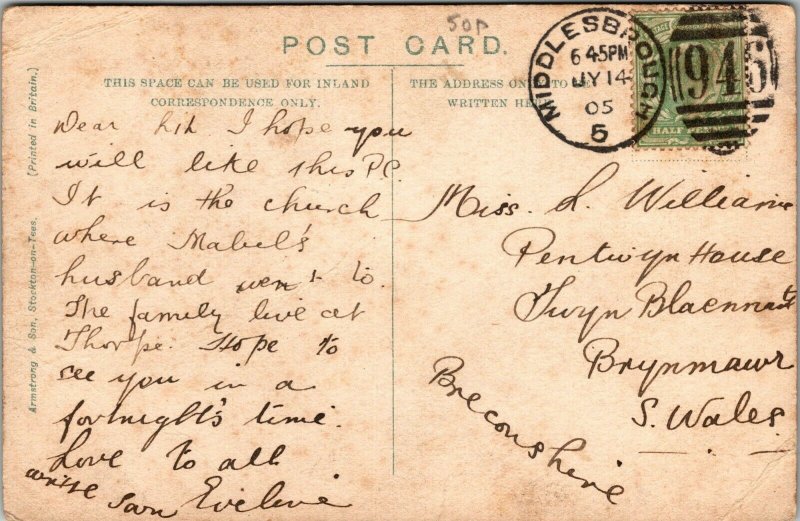 50p
POST CARD.
THIS SPACE CAN BE USED FOR INLAND
CORRESPONDENCE ONLY.
THE ADDRESS ON TO BE
WRITTEN HERE
MIDDLESBROUGH
6 45PM
JY 14
05
5
946
HALF PEN
[Printed in Britain.]
Armstrong & Son, Stockton-on-Tees.
Dear I hope you
will like this P.C.
It is the church
where Mabel's
husband went to.
The family live at
Thorpe. Hope to
see you in a
fortnight's time.
Love to all
write soon Eveline
Miss. L. Williams
Pentwyn House
Twyn Blaennant
Brynmawr
S. Wales.
Breconshire